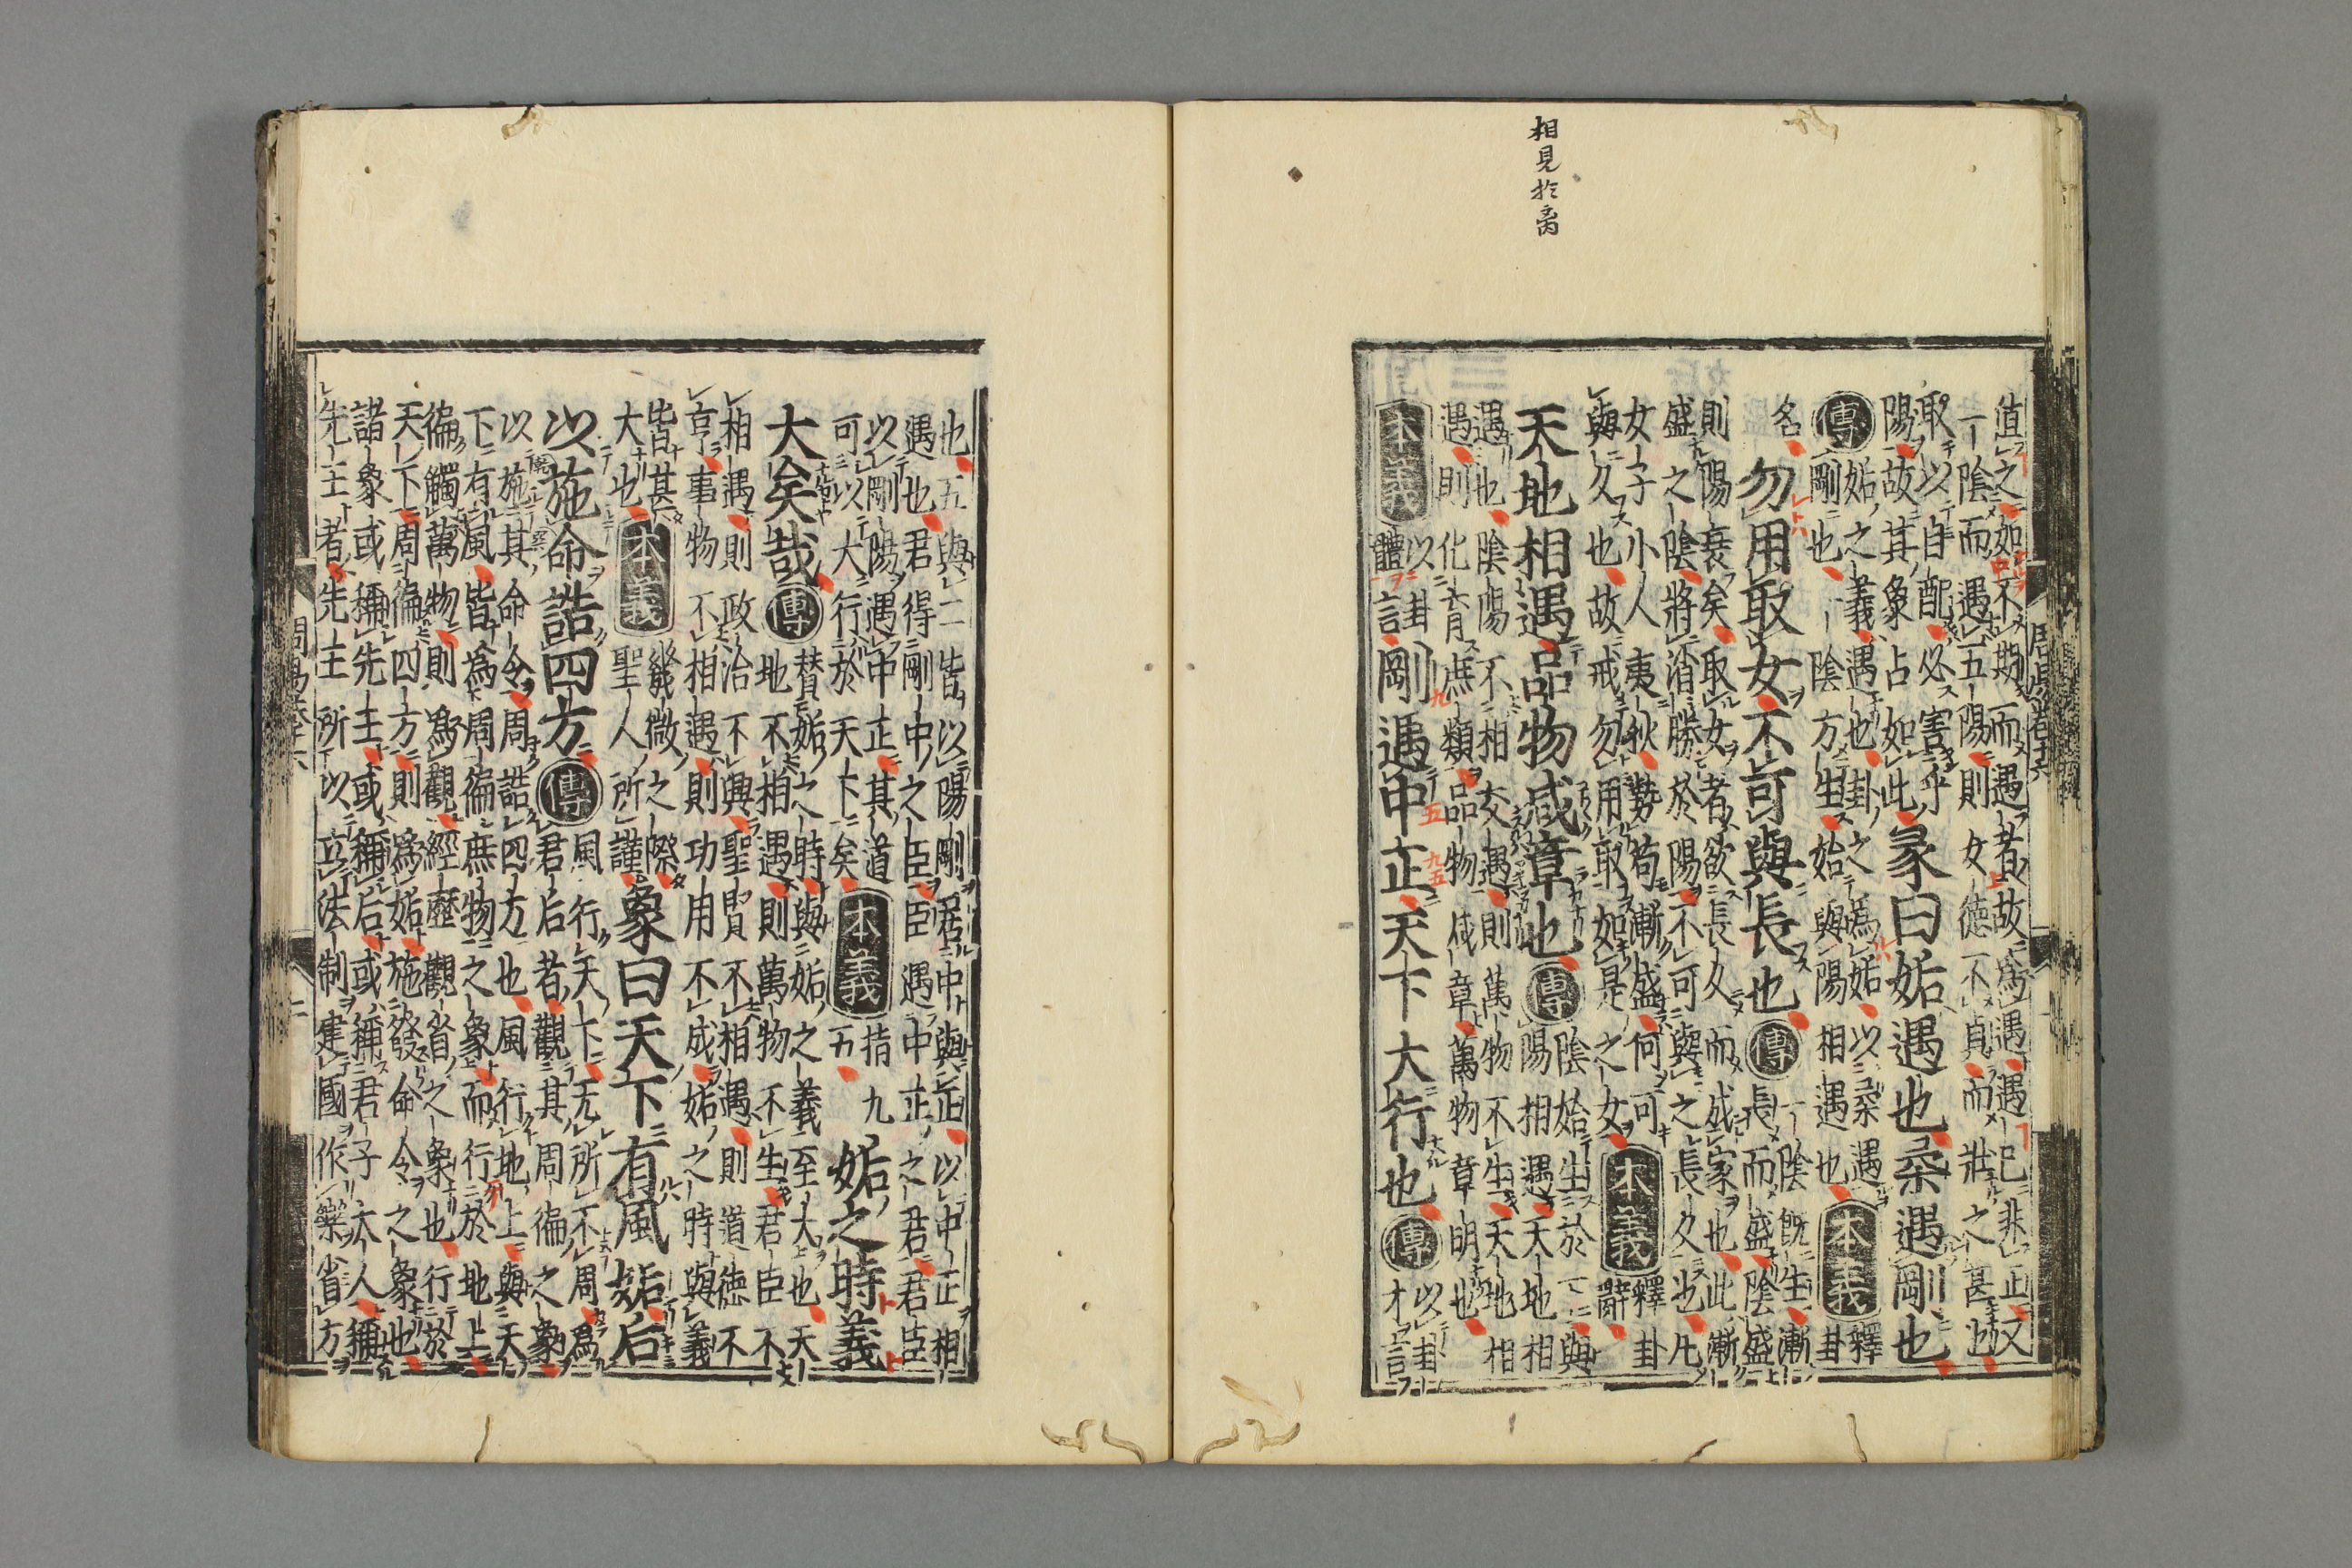 相見於离
周易卷十六
值之如不期而遇者故爲遇遇已非正又
一陰而遇五陽則女德不貞而壯之甚也
取以自配必害乎
陽故其象占如此
彖曰姤遇也柔遇剛也
傳
姤之義遇也卦之爲姤以柔遇
剛也一陰方生始與陽相遇也
本義
釋
卦
名
勿用取女不可與長也
傳
一陰既生漸
長而盛陰盛
則陽衰矣取女者欲長久而成家也此漸
盛之陰將消勝於陽不可與之長久也凡
女子小人夷狄勢苟漸盛何可
與久也故戒勿用取如是之女
本義
釋卦
辭
天地相遇品物咸章也
傳
陰始生於下與
陽相遇天地相
遇也陰陽不相交遇則萬物不生天地相
遇則化育庶類品物咸章萬物章明也
本義
以卦
體言
剛遇中正天下大行也
傳
以卦
才言
也五與二皆以陽剛居中與正以中正相
遇也君得剛中之臣臣遇中正之君君臣
以剛陽遇中正其道
可以大行於天下矣
本義
指九
五
姤之時義
大矣哉
傳
賛姤之時與姤之義至大也天
地不相遇則萬物不生君臣不
相遇則政治不興聖賢不相遇則道德不
亨事物不相遇則功用不成姤之時與義
皆甚
大也
本義
幾微之際
聖人所謹
象曰天下有風姤后
以施命誥四方
傳
風行天下无所不周爲
君后者觀其周徧之象
以施其命令周誥四方也風行地上與天
下有風皆爲周徧庶物之象而行於地上
徧觸萬物則爲觀經歷觀省之象也行於
天下周徧四方則爲姤施發命令之象也
諸象或稱先王或稱后或稱君子大人稱
先王者先王所以立法制建國作樂省方